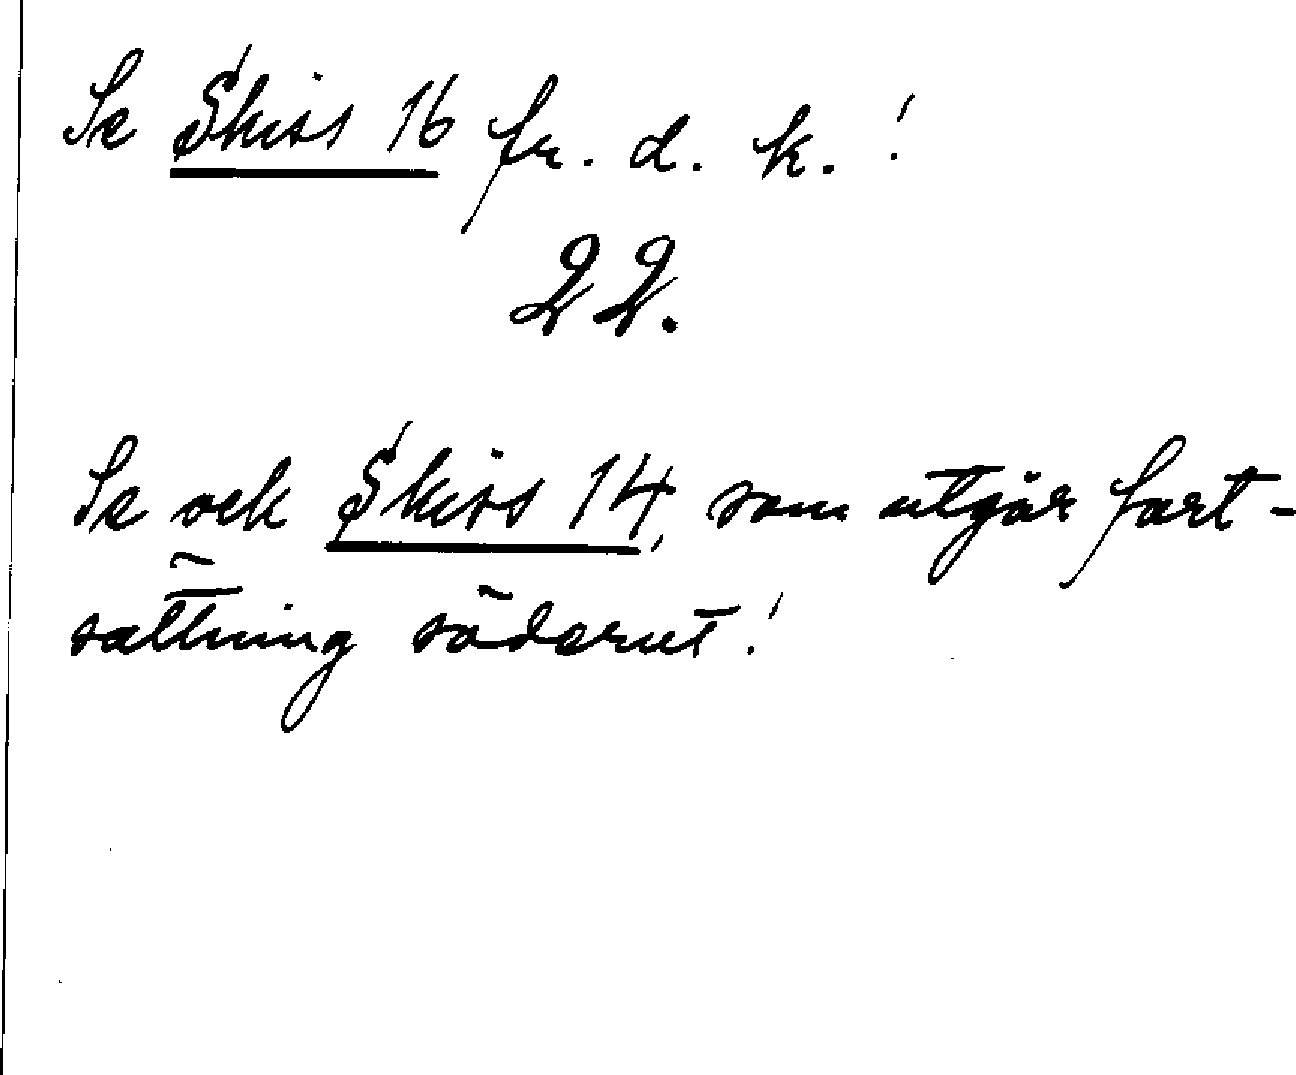 Se Skiss 16 fr. d. k.!
22.
Se ock Skiss 14, som utgör fort-
sättning söderut!